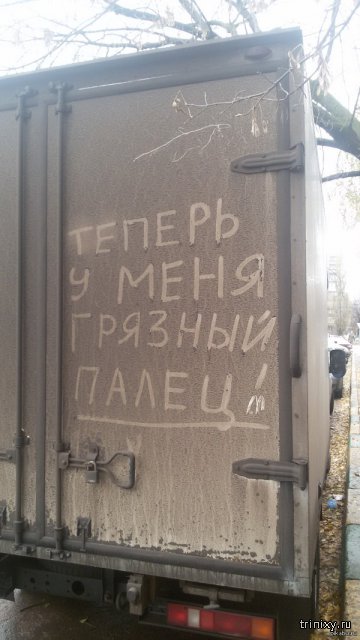 ТЕПЕРЬ
У МЕНЯ
ГРЯЗНЫЙ
ПАЛЕЦ!
trinixy.ru